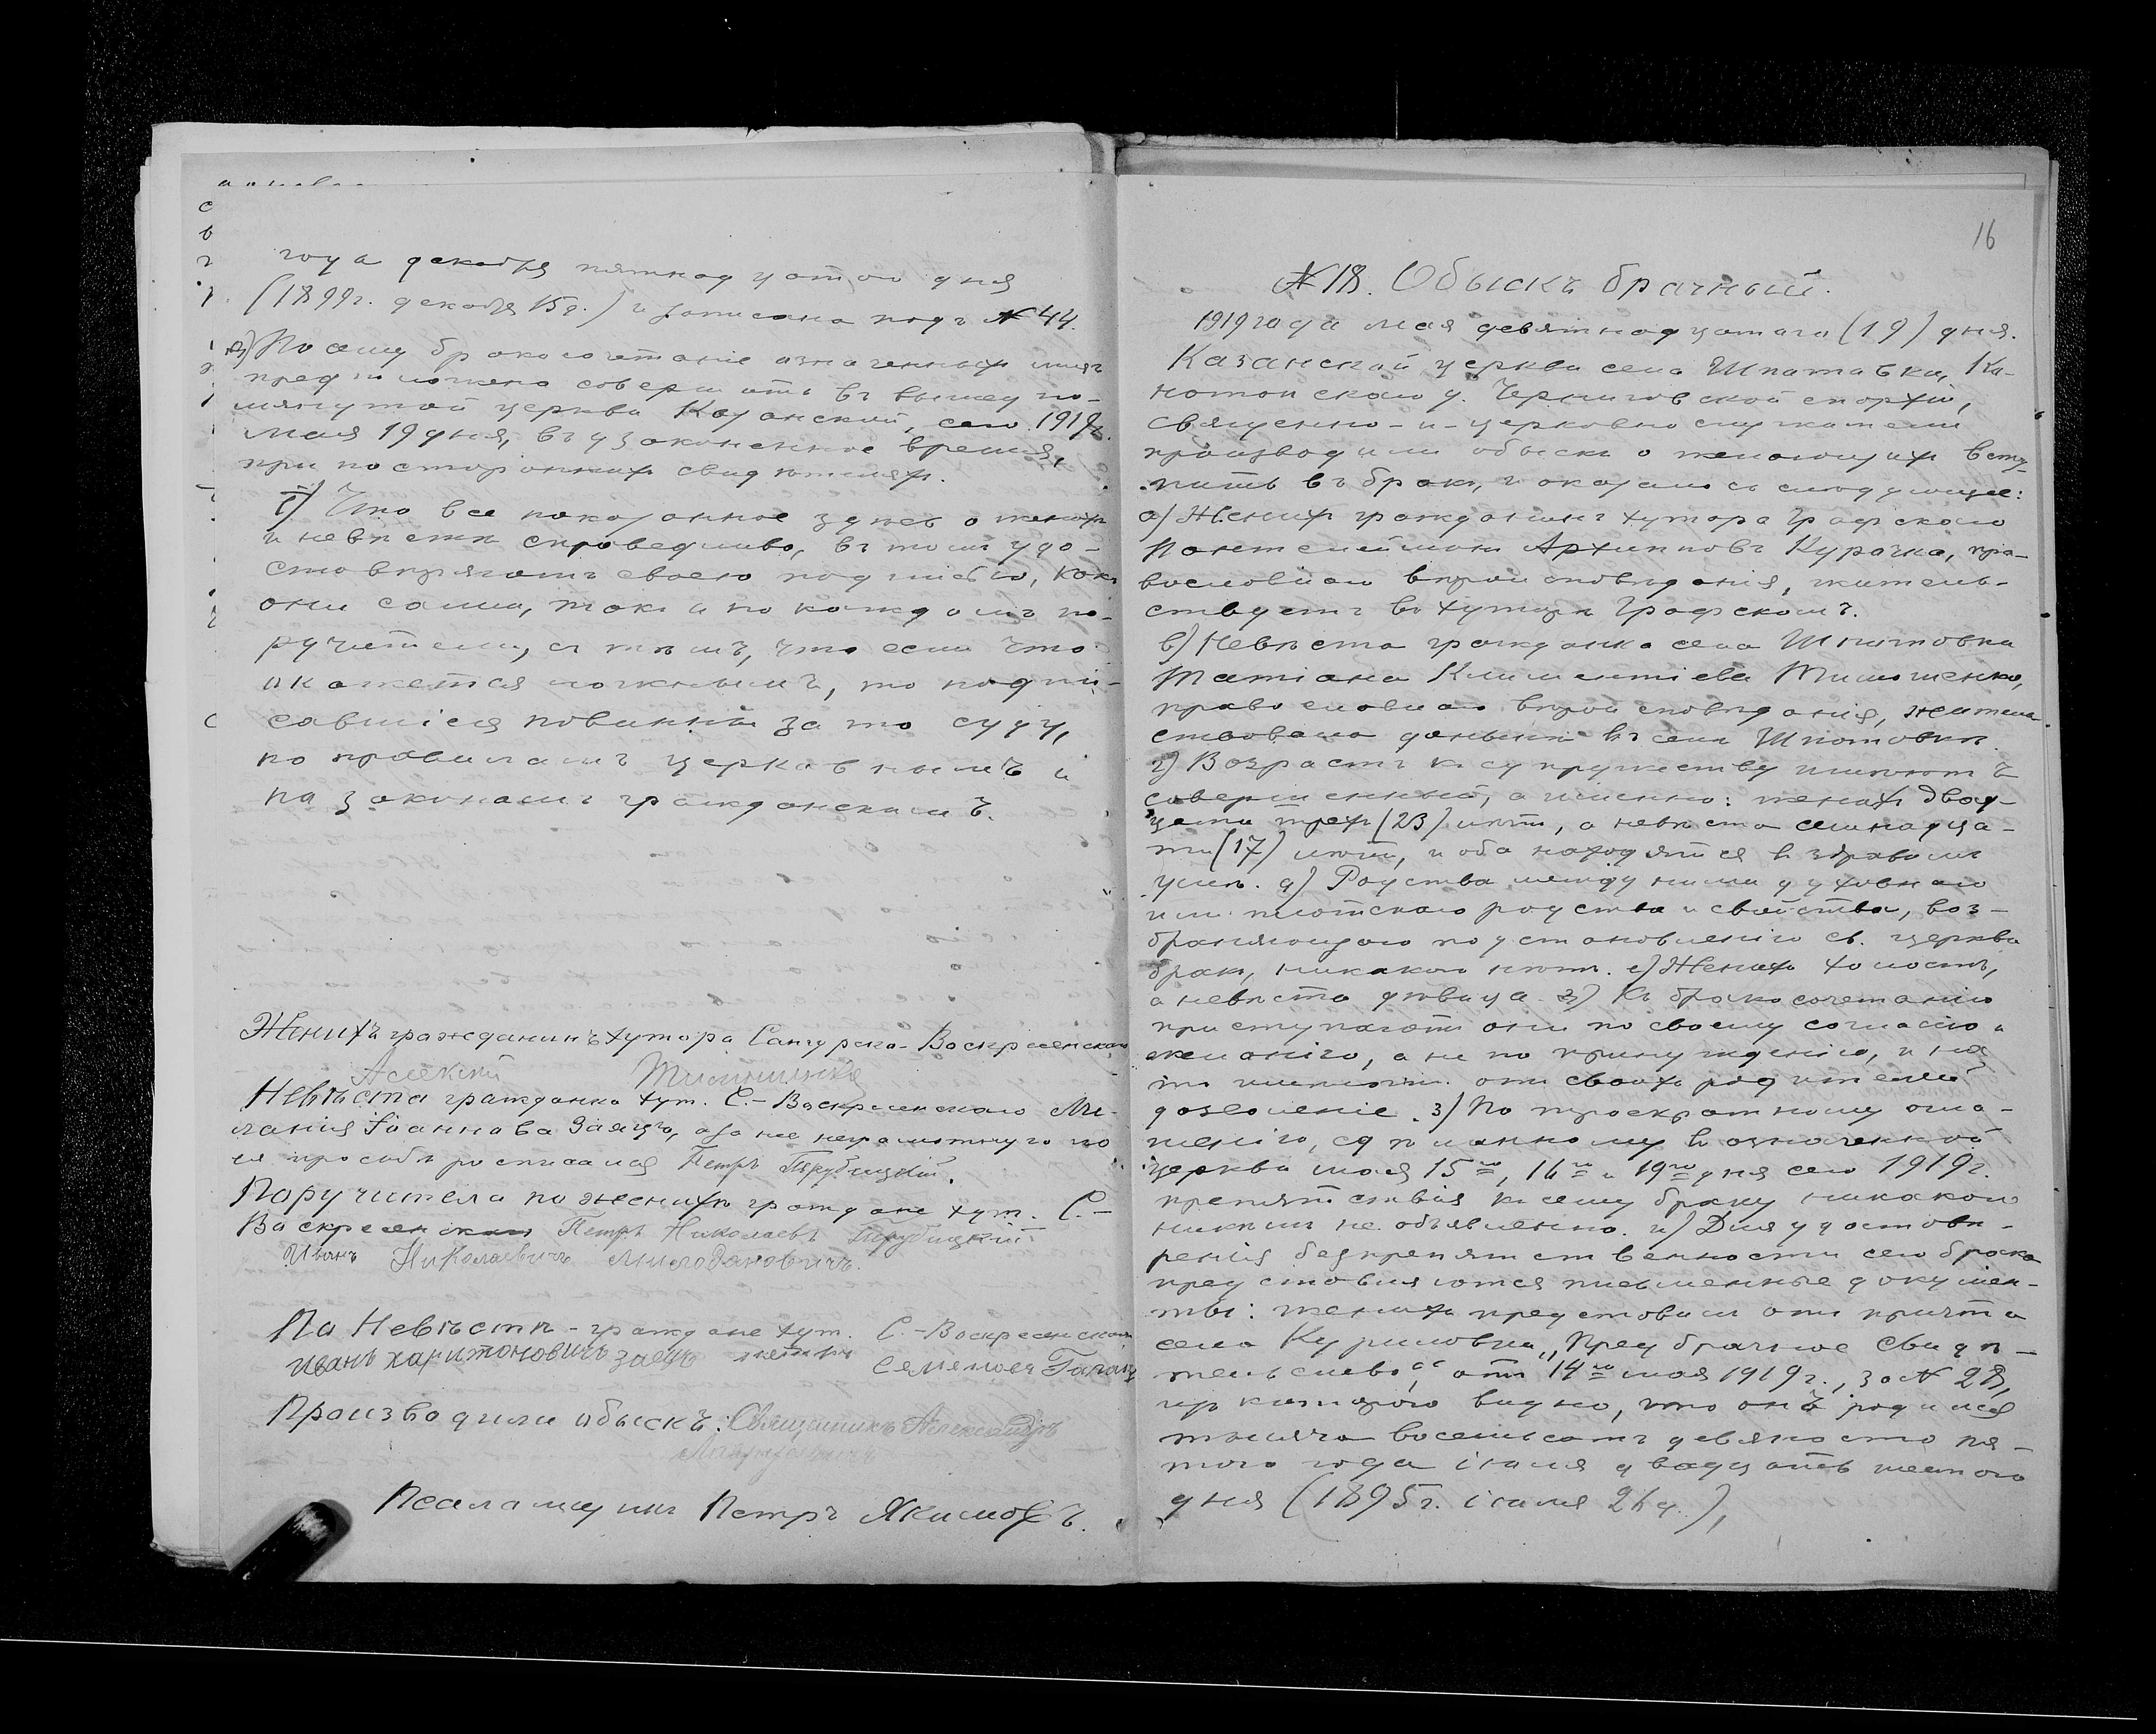 года декабря пятнадцатого дня
(1899г. декабря 15д.) и записана подъ № 44.
Посему бракосочетаніе означенныхъ лицъ
предположено совершить въ вышеупо-
мянутой церкви Казанской, сего 1919г.
мая 19 дня, въ узаконенное время,
при постороннихъ свидѣтеляхъ.
і) Что все показанное здѣсь о женихѣ
и невѣстѣ справедливо, въ томъ удо-
стовѣряютъ своею подписью, какъ
они сами, такъ и по каждомъ по-
ручители, съ тѣмъ, что если что
окажется ложнымъ, то подпи-
савшіеся повинны за то суду,
по правиламъ церковнымъ и
по законамъ гражданскимъ.
Женихъ гражданинъ хутора Сангурско-Воскресенскаго
Алексѣй Тимошенко
Невѣста гражданка хут. С.-Воскресенскаго Ме-
ланія Іоаннова Заяцъ, а за нее неграмотную по
ея просьбѣ росписался Петръ Трубицкій.
Поручители по женихѣ граждане хут. С.-
Воскресенскаго Петръ Николаевъ Трубицкій
Иванъ Николаевичъ Милодановичъ.
По Невѣстѣ - граждане хут. С.-Воскресенскаго
Иванъ харитоновичъ заецъ Семеновъ
Производили обыскъ: Священникъ Александръ
Псаломщикъ Петръ Якимовъ.
16
№ 18. Обыскъ брачный.
1919 года мая девятнадцатаго (19) дня.
Казанской церкви села Шпотовки, Ко-
нотопскаго у. Черниговской епархіи,
священно-и-церковнослужители
производили обыскъ о желающихъ всту-
пить въ бракъ, и оказалось слѣдующее:
а) Женихъ гражданинъ хутора Графскаго
Пантелеймонъ Архиповъ Курочка, пра-
вославнаго вѣроисповѣданія, житель-
ствуетъ въ хуторѣ Графскомъ.
в) Невѣста гражданка села Шпотовки
Татіана Климентіева Тимошенко,
православнаго вѣроисповѣданія, житель-
ствовала донынѣ въ селѣ Шпотовкѣ.
г) Возрастъ къ супружеству имѣютъ
совершенный, а именно: женихъ двад-
цати трехъ (23) лѣтъ, а невѣста семнадца-
ти (17) лѣтъ, и оба находятся въ здравомъ
умѣ. д) Родства между ними духовнаго
или плотскаго родства и свойства, воз-
браняющаго по установленію св. церкви
бракъ, никакого нѣтъ. е) Женихъ холостъ,
а невѣста дѣвица. з) Къ бракосочетанію
приступаютъ они по своему согласію и
желанію, а не по принужденію, и на
то имѣютъ отъ своихъ родителей
дозволеніе. з) По троекратному огла-
шенію, сдѣланному въ означенной
церкви мая 15го, 16го и 19го дня сего 1919г.
препятствія къ сему браку никакого
никѣмъ не объявленно. и) Для удостовѣ-
ренія безпрепятственности сего брака
представляются письменные докумен-
ты: женихъ представилъ отъ причта
села Куриловки, „Предбрачное Свидѣ-
тельство“, отъ 14го мая 1919г., за № 28,
изъ котораго видно, что онъ родился
тысяча восемьсотъ девяносто пя-
того года іюля двадцать шестого
дня (1895г. іюля 26д.),